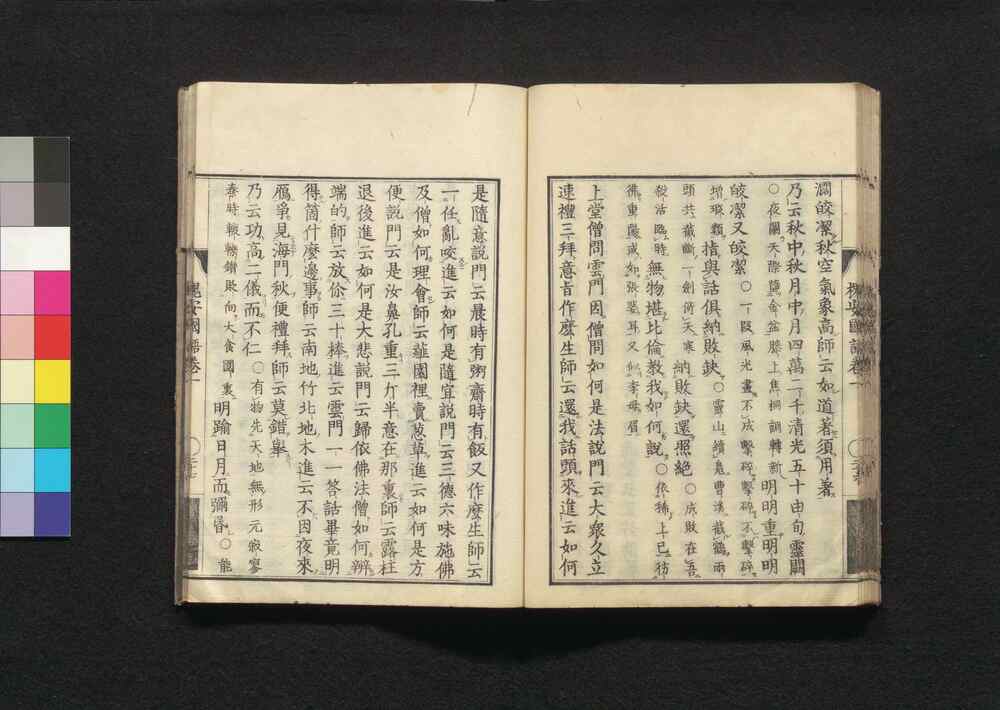 濶皎潔秋空氣象高師云如道著須用著
乃云秋中秋月中月四萬二千清光五十由旬靈關
○夜闌天際墮金盆賸上焦桐調轉新明明重明明
皎潔又皎潔○一段風光畫不成擊碎擊碎不擊碎
增瑕纇指與話俱納敗缺○靈山續鳧曹溪截鶴兩
頭共截斷一劍倚天寒納敗缺還照絕○成敗在吾
殺活臨時無物堪比倫教我如何說○依稀上已彷
彿重陽或如張婆耳又似李母眉
上堂僧問雲門因僧問如何是法說門云大衆久立
速禮三拜意旨作麼生師云還我話頭來進云如何
是隨意說門云晨時有粥齋時有飯又作麼生師云
一任亂咬進云如何是隨宜說門云三德六味施佛
及僧如何理會師云韮園裡賣葱草進云如何是方
便說門云是汝鼻孔重三斤半意在那裏師云露柱
退後進云如何是大悲說門云歸依佛法僧如何辨
端的師云放你三十棒進云雲門一一答話畢竟明
得箇什麼邊事師云南地竹北地木進云不因夜來
鴈爭見海門秋便禮拜師云莫錯舉
乃云功高二儀而不仁○有物先天地無形元寂寥
春時轆轤鑽敗向大食國裏明踰日月而彌昏○龍
槐安國語卷一
槐安國語卷一